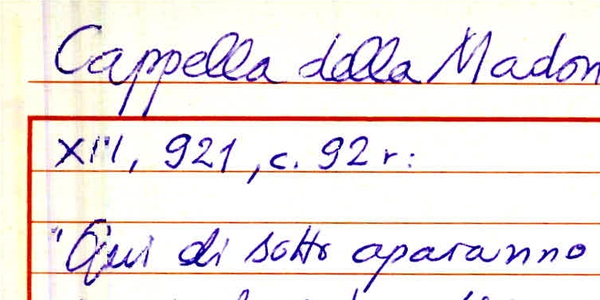 Cappella della Madon
XIII, 921, c. 92 r:
"Qui di sotto aparanno